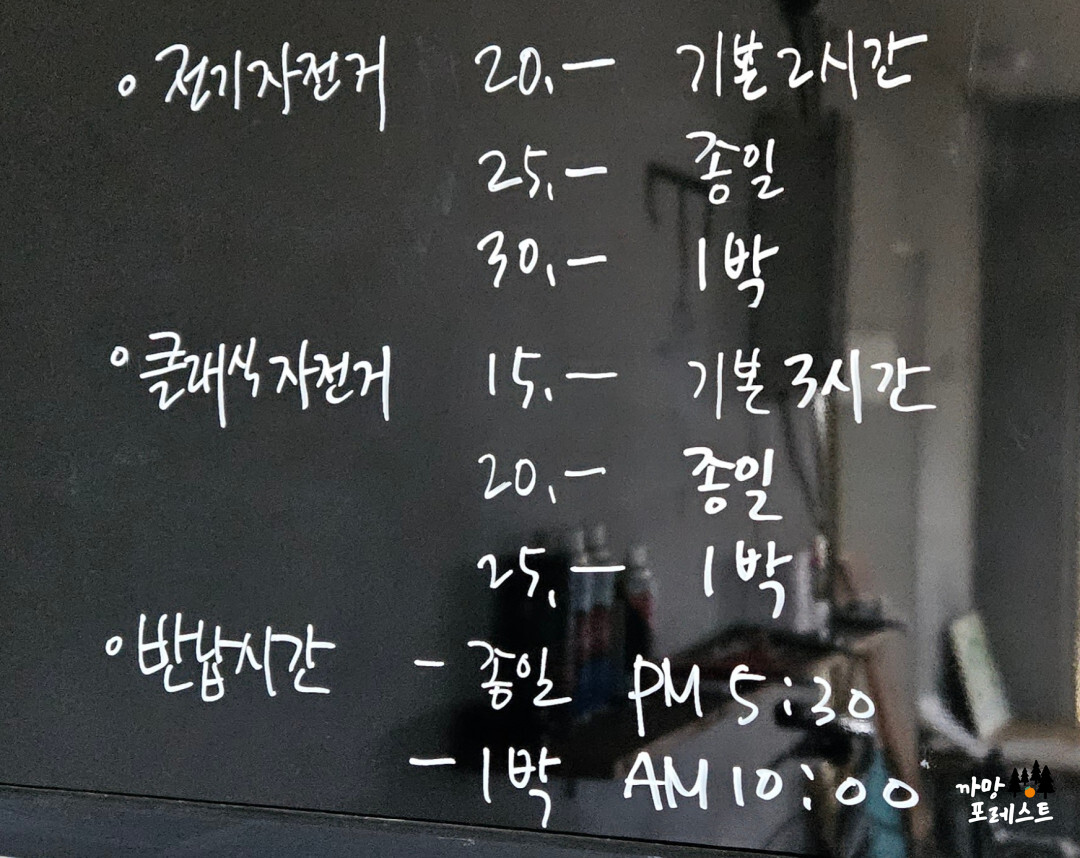 ◦ 전기자전거 20,— 기본 2시간
25,— 종일
30,— 1박
◦ 클래식 자전거 15,— 기본 3시간
20,— 종일
25,— 1박
◦ 반납시간 – 종일 PM 5:30
– 1박 AM 10:00
까망
포레스트